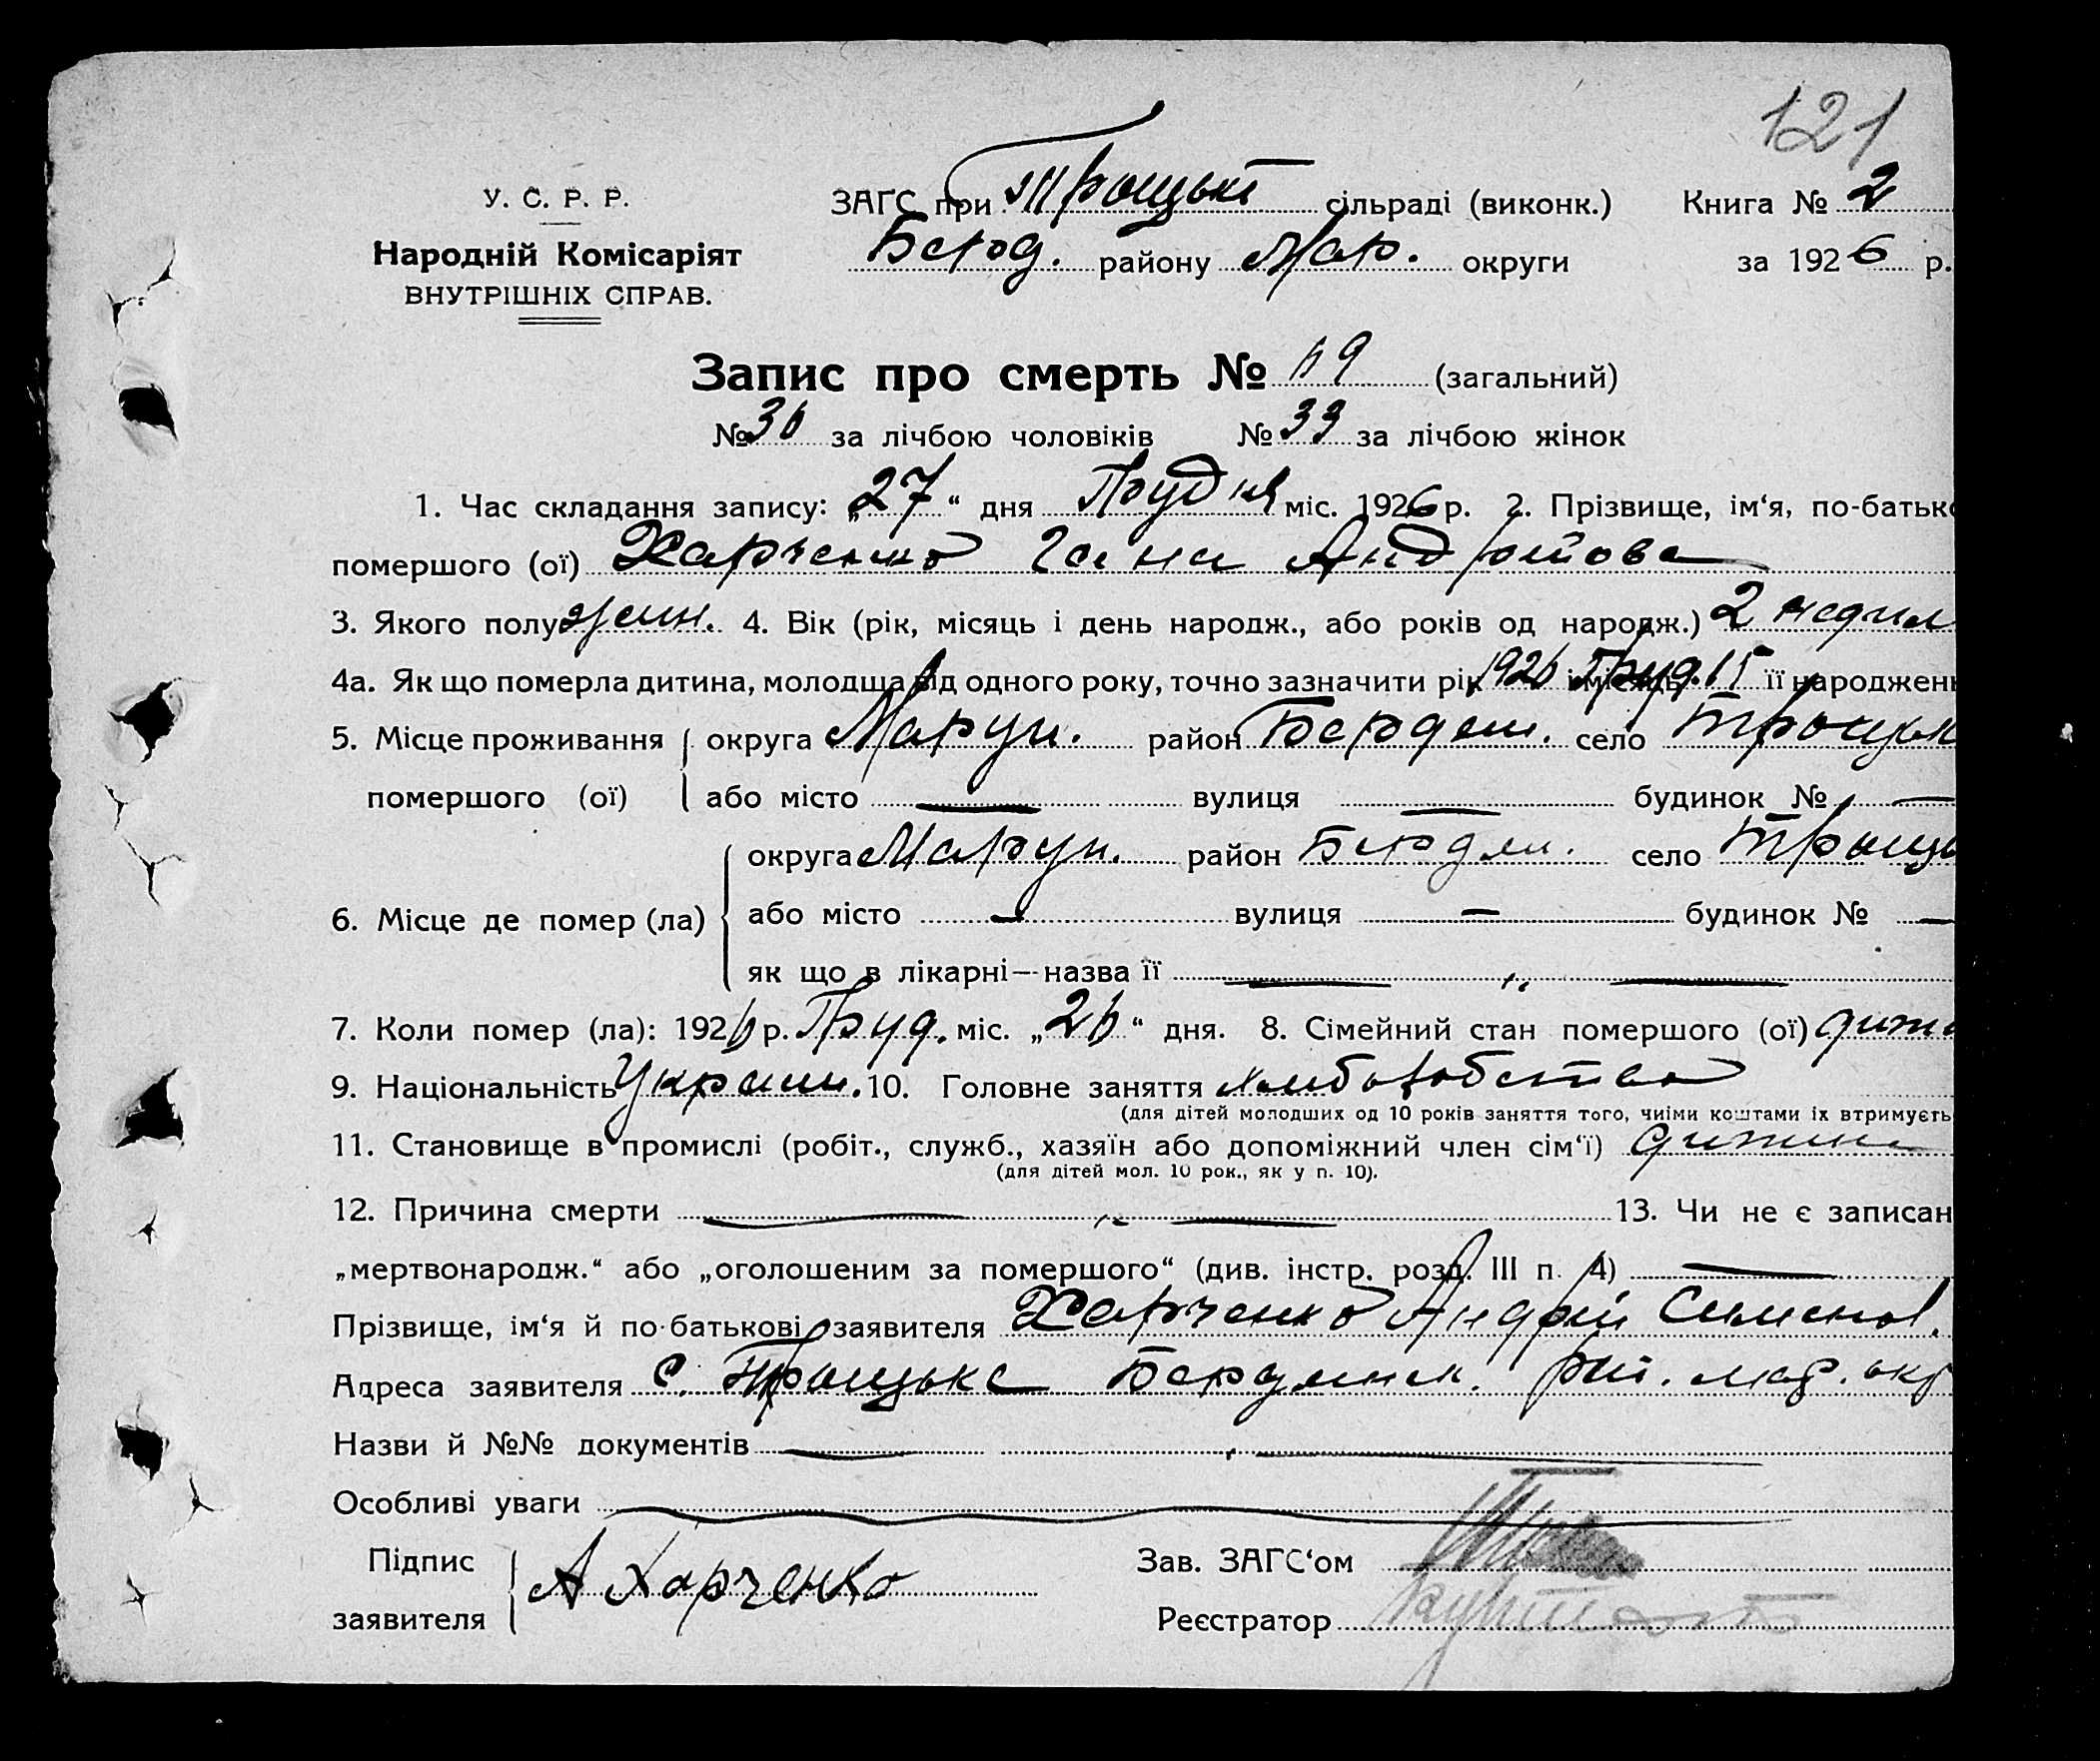 121
У. С. Р. Р.
Народній Комісаріят
ВНУТРІШНІХ СПРАВ.
ЗАГС при Троцькі сільраді (виконк.) Книга № 2
Берд. району Мар. округи за 1926 р.
Запис про смерть № 69 (загальний)
№ 36 за лічбою чоловіків № 33 за лічбою жінок
1. Час складання запису: „27“ дня Грудня міс. 1926 р. 2. Прізвище, ім‘я, по-батьк
помершого (ої) Харченко Гана Андріївова
3. Якого полу жин. 4. Вік (рік, місяць і день народж., або років од народж.) 2 недил
4а. Як що померла дитина, молодща від одного року, точно зазначити рік 1926 і місяць Груд. 15 її народжен
5. Місце проживання округа Маруп. район Бердян. село Троцьк
помершого (ої) або місто — вулиця — будинок № —
округа Маруп. район Бердян. село Троць
6. Місце де помер (ла) або місто — вулиця — будинок № —
як що в лікарні—назва її — „ —
7. Коли помер (ла): 1926 р. Груд. міс. „26“ дня. 8. Сімейний стан помершого (ої) дити
9. Національність Україн. 10. Головне заняття хлиборобство
(для дітей молодших од 10 років заняття того, чиїми коштами їх втримуєть
11. Становище в промислі (робіт., служб., хазяїн або допоміжний член сім‘ї) дитина
(для дітей мол. 10 рок., як у п. 10).
12. Причина смерти — „ — 13. Чи не є записан
„мертвонародж.“ або „оголошеним за помершого“ (див. інстр. розд. III п. 4) —
Прізвище, ім‘я й по-батькові заявителя Харченко Андрій Сименов.
Адреса заявителя с. Троцьке Бердянск. рай. мар. окр
Назви й №№ документів — , —
Особливі уваги —
Підпис
заявителя А Харченко
Зав. ЗАГС‘ом
Реєстратор